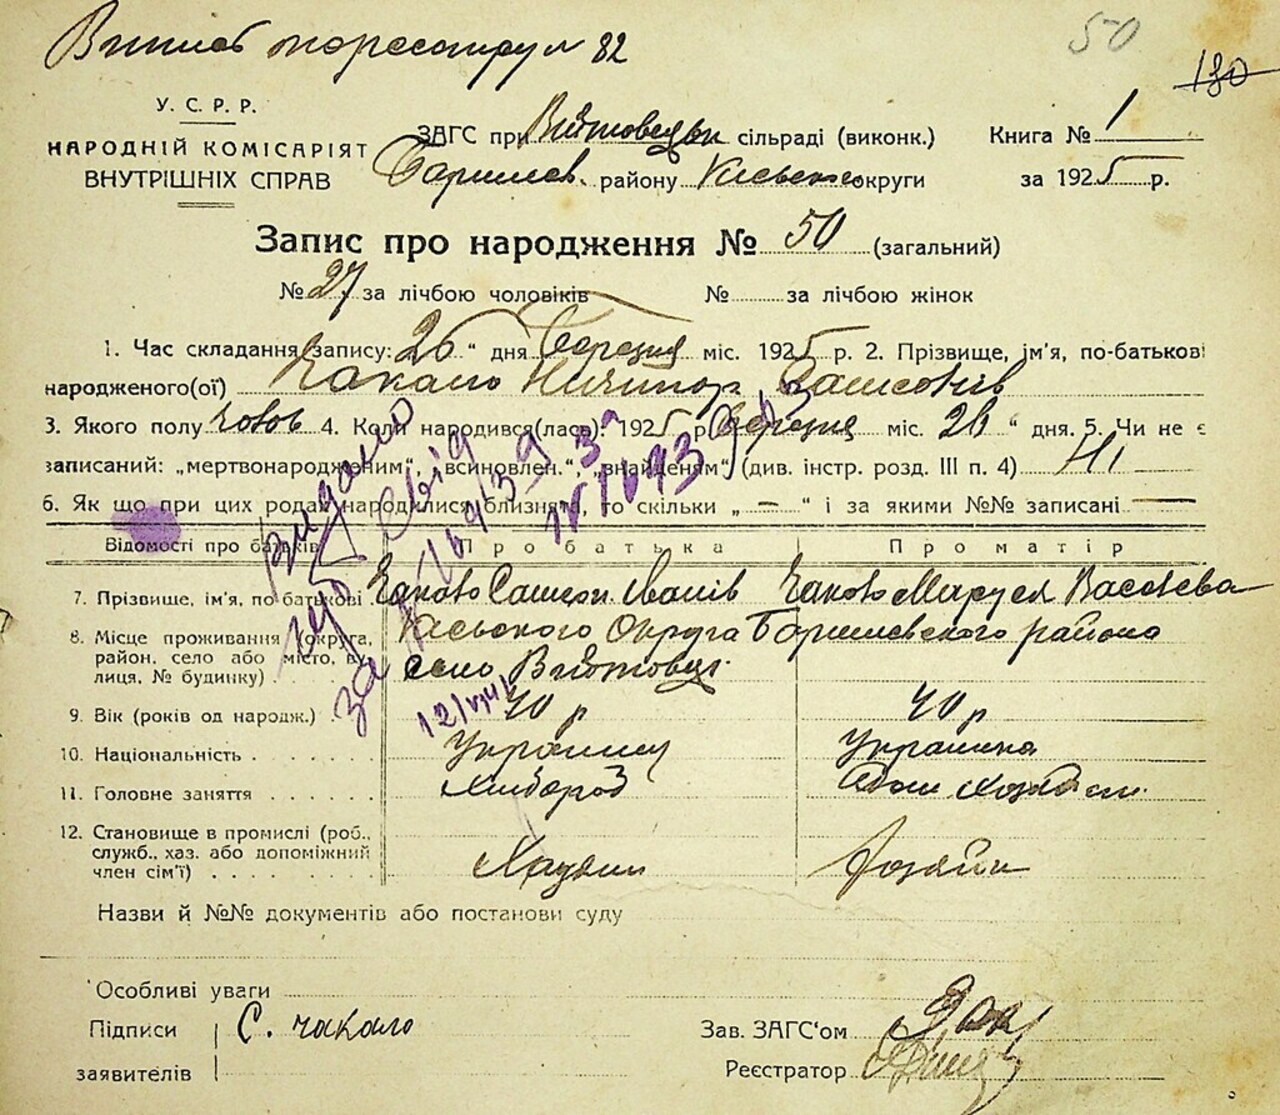 50
82
130
У. С. Р. Р.
НАРОДНІЙ КОМІСАРІЯТ
ВНУТРІШНІХ СПРАВ
ЗАГС при Війтовецьк сільраді (виконк.)
Баришев. району Київсько округи
Книга № 1
за 1925 р.
Запис про народження № 50 (загальний)
№ 27 за лічбою чоловіків № за лічбою жінок
1. Час складання запису: 26 “ дня березня міс. 1925 р. 2. Прізвище, ім'я, по-батькові
народженого(ої) Чакало Ничипор
3. Якого полу чолов 4. Коли народився(лась): 1925 р березня міс. 26 “ дня. 5. Чи не є
записаний: „мертвонародженим“, „всиновлен.“, „знайденям“ (див. інстр. розд. III п. 4) Ні
6. Як що при цих родах народилися близнята, то скільки „ — “ і за якими №№ записані —
Відомості про батьків Про батька Про матір
7. Прізвище, ім'я, по батькові Чакало Іванів Чакало Маруся
8. Місце проживання (округа, Київського Округа Баришевского района
район, село або місто, ву- село Війтовці
лиця, № будинку)
9. Вік (років од народж.) 40 р 40 р
10. Національність Українец Українка
11. Головне заняття Хлібороб Дом. хозяйст.
12. Становище в промислі (роб., Хазяин Хозяйка
служб., хаз. або допоміжний
член сім'ї)
Назви й №№ документів або постанови суду
Особливі уваги
Підписи С. Чакало
заявителів
Зав. ЗАГС'ом
Реєстратор
видано
свід
за №